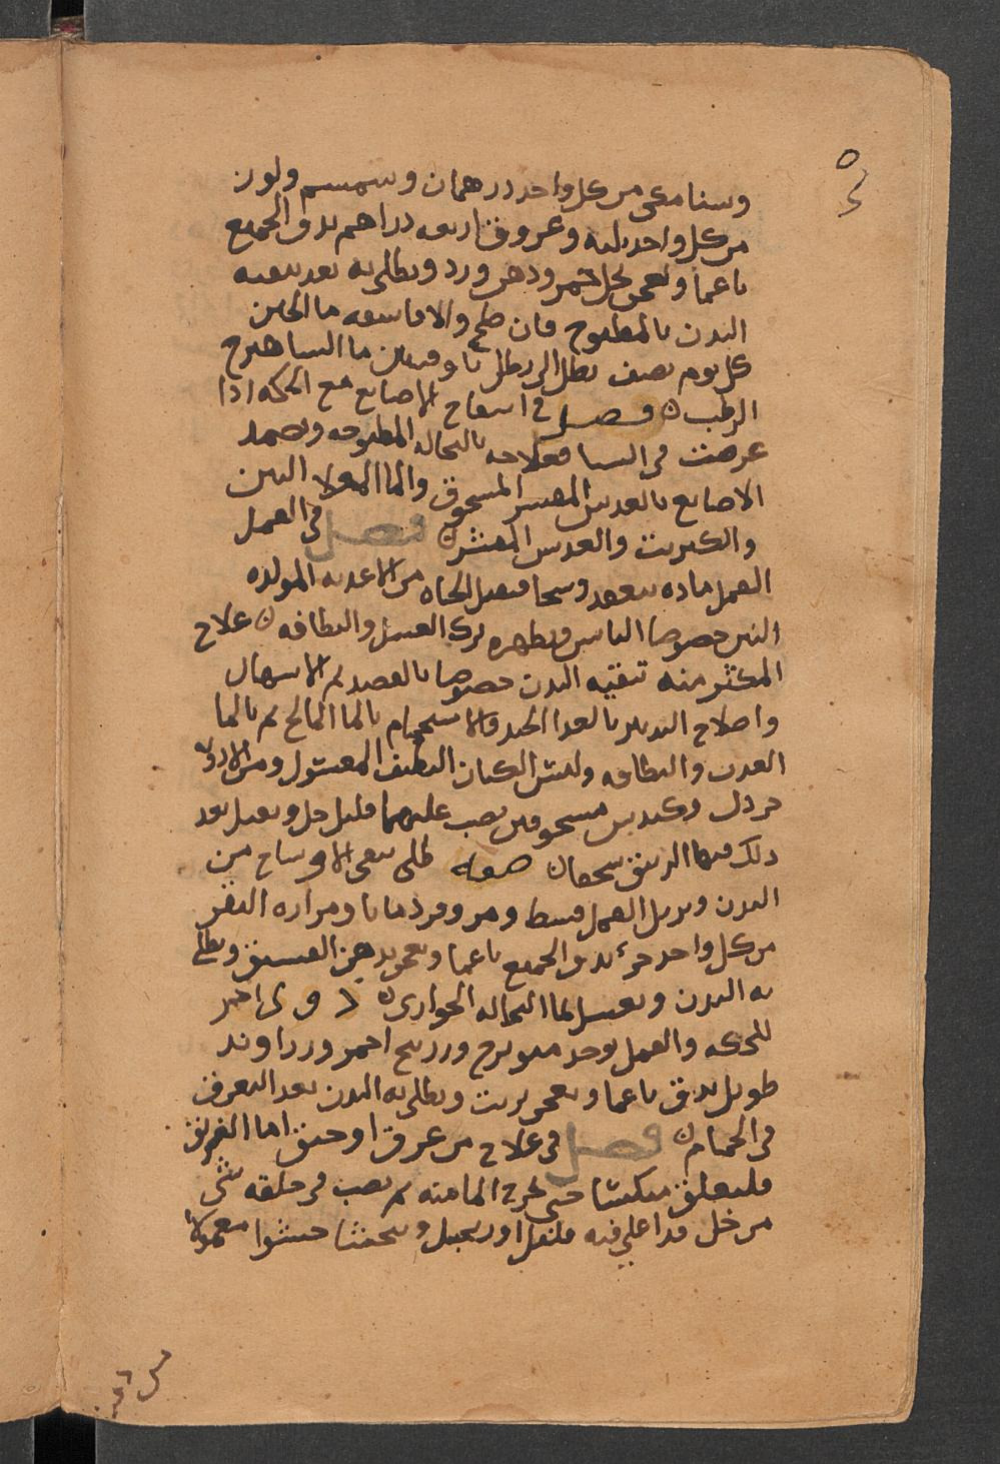 وسنا مكى من كل واحد درهمان وسمسم ولوز
من كل واحد ثلثه وعروق اربعه دراهم يدق الجميع
ناعما ويعجن بخل خمر ودهن ورد ويطلى به بعد تنقيه
البدن بالمطبوخ فان نجح والا فاسقه ما الجبن
كل يوم نصف رطل الى رطل باوقيتين ما الشاهترج
الرطب فصل فى انتفاخ الاصابع مع الحكه اذا
عرضت فى الشتا فعلاجه بالنخاله المطبوخه ويضمد
الاصابع بالعدس المقشر المسحوق والما المغلا التين
والكبريت والعدس المقشر فصل فى القمل
القمل ماده تتعفن وسخا فيقبل الحياه من الاغذيه المولده
التين خصوصا اليابس ويظهره ترك الغسل والنظافه علاج
المكثر منه تنقيه البدن خصوصا بالفصد ثم الاسهال
واصلاح التدبير بالغدا الجيد والاستحمام بالما المالح ثم بالما
العذب والنظافه ولبس الكتان النظيف المغسول ومن الادويه
خردل وكندس مسحوقين يصب عليهما قليل خل ويقتل بعد
ذلك فيها الزيبق سحقا صفه طلى ينقى الاوساخ من
البدن ويزيل القمل قسط ومر وقردمانا ومراره البقر
من كل واحد جزء يدق الجميع ناعما ويعجن بدهن الفستق ويطلى
به البدن ويغسل بما النخاله الحوارى دوى اخر
للحكه والقمل يوخذ ميويزج وزرنيخ احمر وزراوند
طويل يدق ناعما ويعجن بزيت ويطلى به البدن بعد التعرق
فى الحمام فصل فى علاج من غرق او خنق اما الغريق
فليعلق منكسا حتى يخرج الما منه ثم يصب فى حلقه شى
من خل قد اغلى فيه فلفل او زنجبيل ويحتشا حشوا معمولا